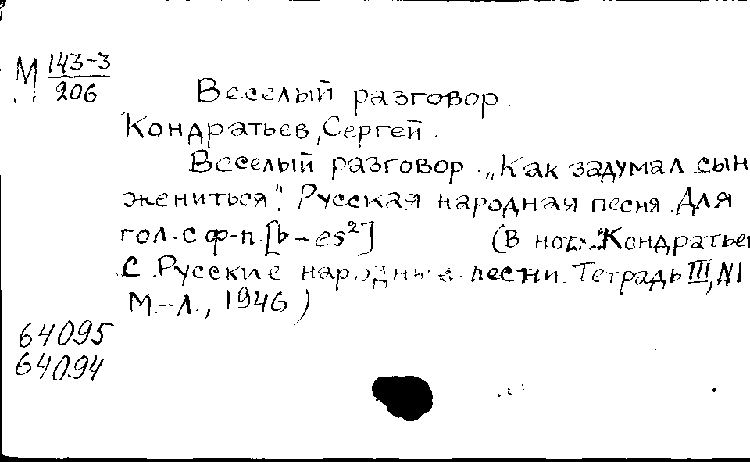 М 143-3
206
Веселый разговор.
Кондратьев, Сергей.
Веселый разговор. „Как задумал сын
жениться“. Русская народная песня. Для
гол. с ф-п. [b – es²] (В нот.: Кондратьев
С. Русские народные песни. Тетрадь III, №1
М.-Л., 1946)
64095
64094